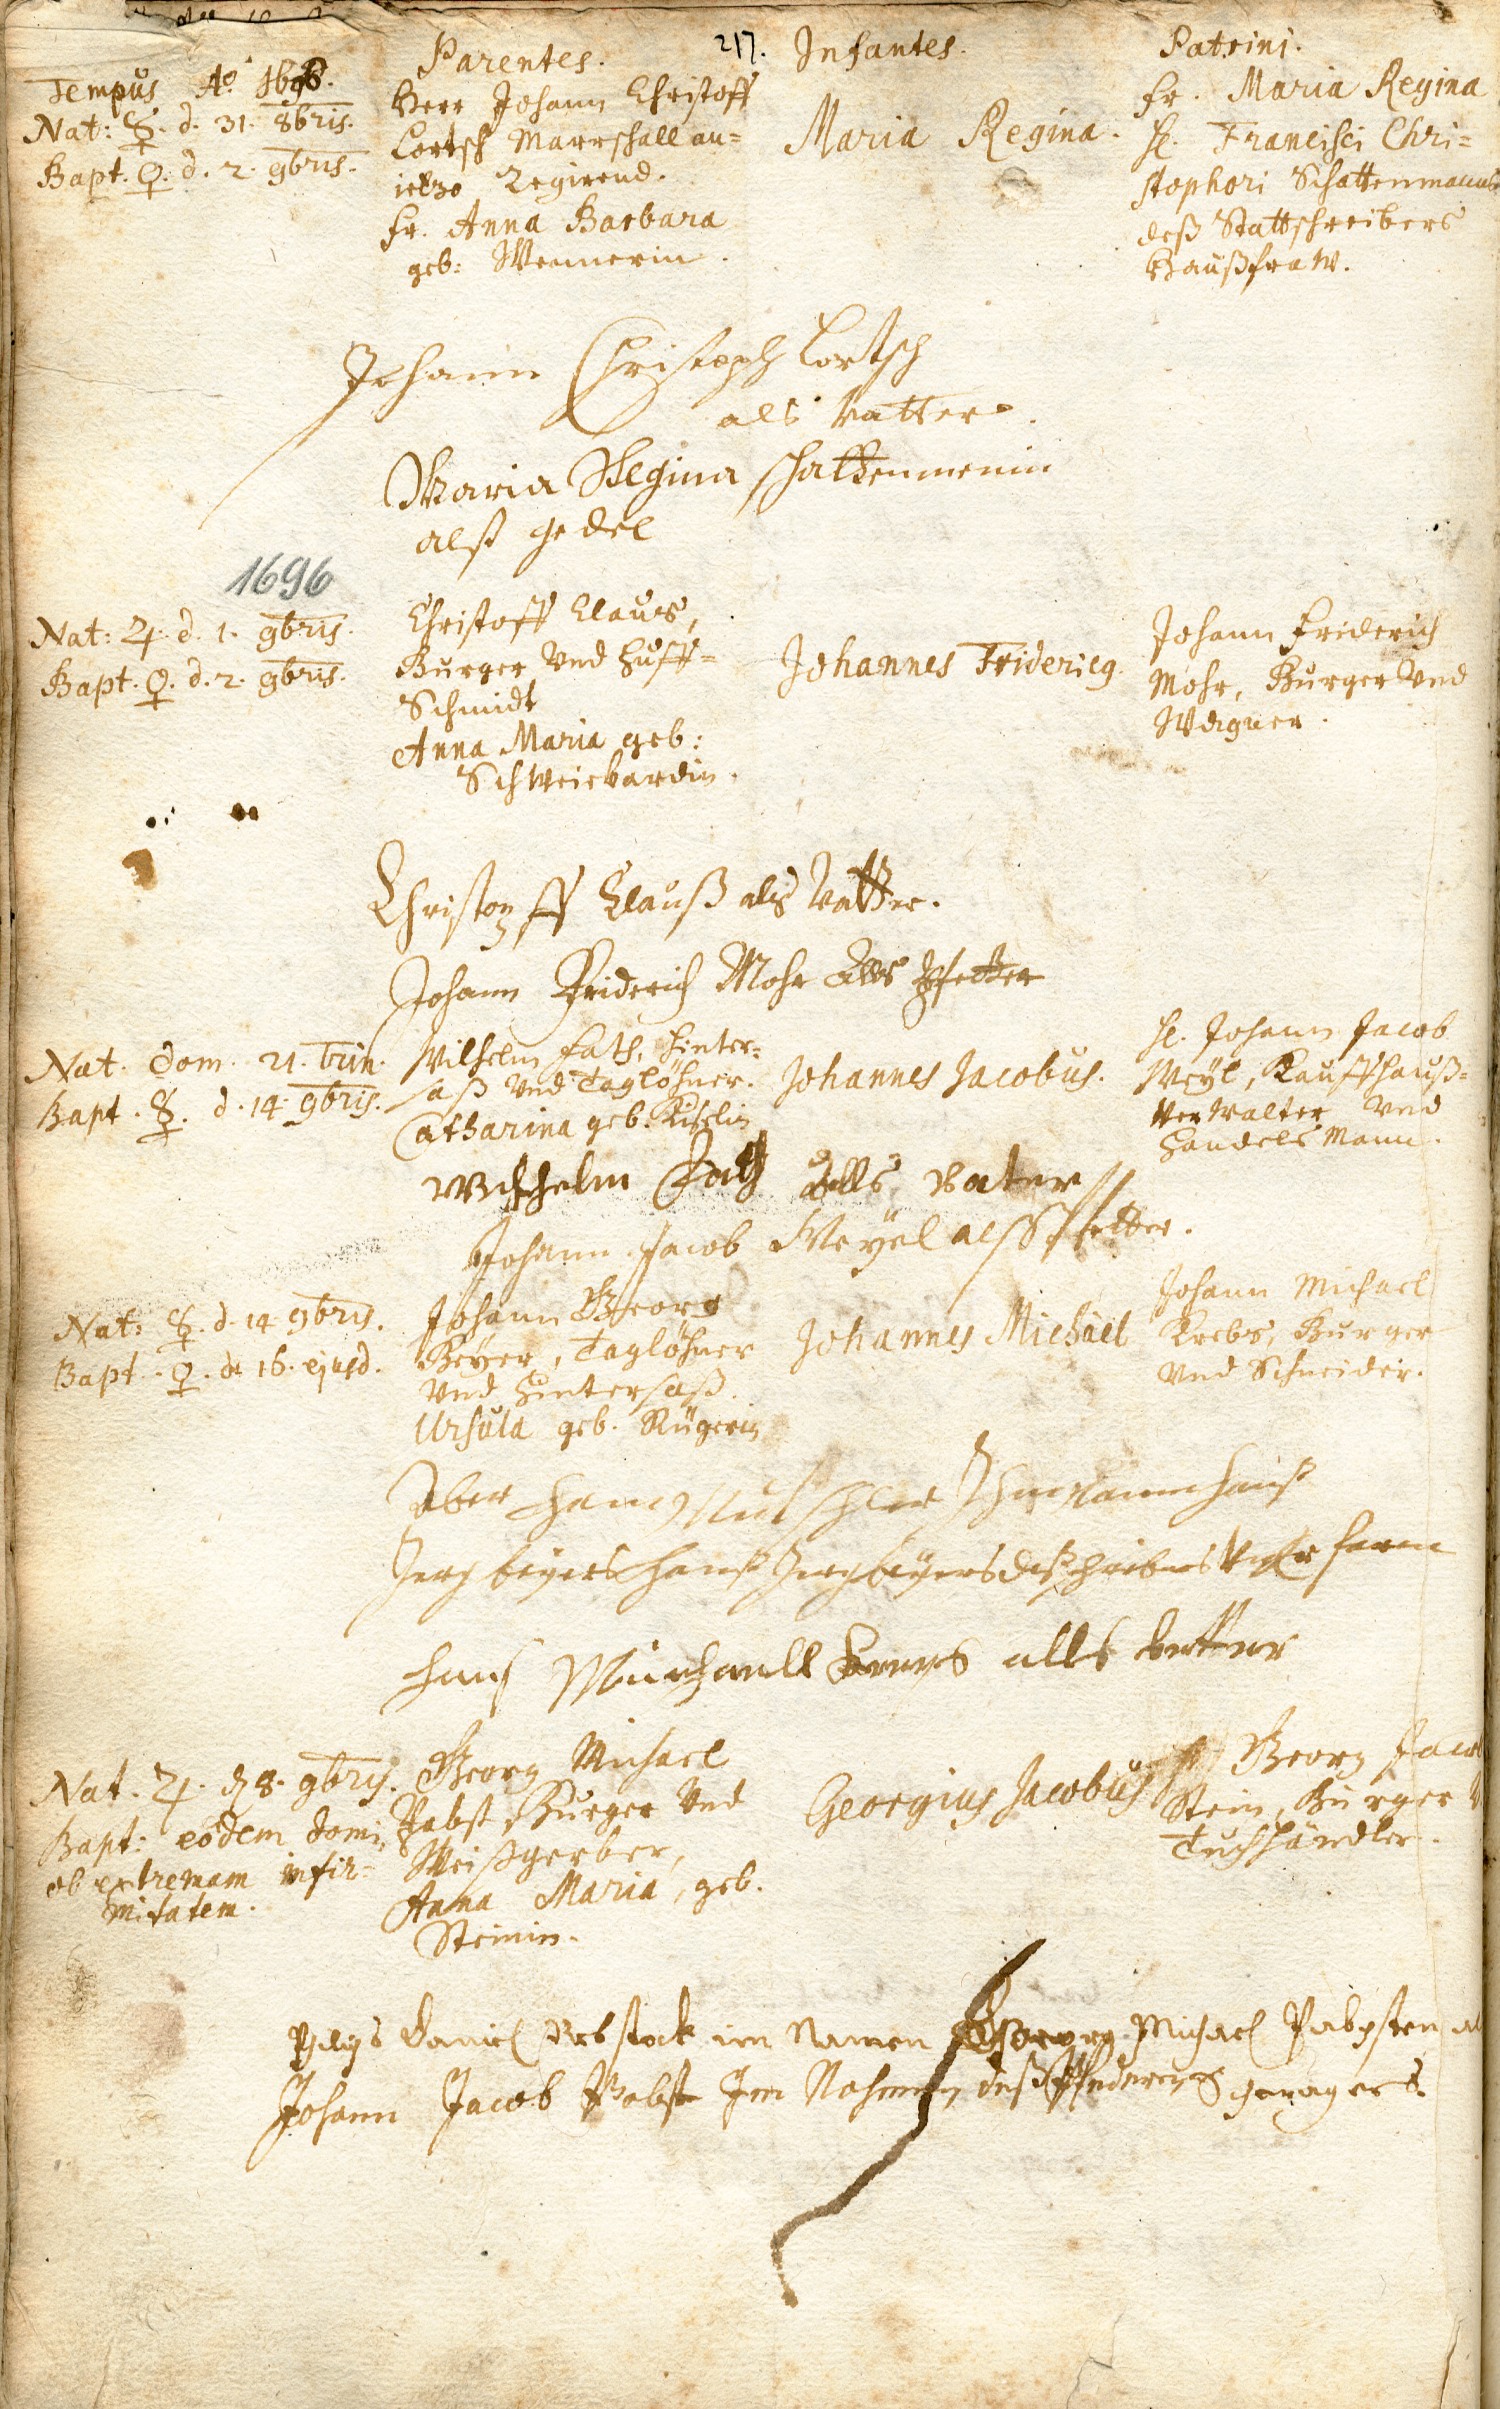 217.
Tempus Aº 1696.
Parentes.
Infantes.
Patrini.
Nat: ☿. d. 31. 8bris.
Bapt. ♀. d. 2. 9bris.
Herr Johann Christoff
Lortsch Marrschall an=
ietzo Regirend.
Fr. Anna Barbara
geb: Wennerin.
Maria Regina.
Fr. Maria Regina
H. Francisci Chri=
stophori Schattenmanns
deß Stattschreibers
Haußfraw.
Johann Christoph Lortsch
als Vatter.
Maria Regina schattenmenin
alß gedel
1696
Nat: ♃. d. 1. 9bris.
Bapt. ♀. d. 2. 9bris.
Christoff Claus,
Burger Vnd Huff=
Schmidt
Anna Maria geb:
Schweickardin.
Johannes Fridericg.
Johann Friderich
Mohr, Burger Vnd
Wagner.
Christoff Clauß als Vatter.
Johann Friderich Mohr als Pfetter
Nat. Dom. 21. trin.
Bapt. ☿. d. 14. 9bris.
Wilhelm Fath, Hinter=
saß Vnd Taglöhner.
Catharina geb.
Johannes Jacobus.
H. Johann Jacob
Weyl, Kauffhauß=
Verwalter Vnd
Handels Mann.
Wilhelm Fath alls Vater
Johann Jacob Weyel alß Pfetter.
Nat: ☿. d. 14 9bris.
Bapt. ♀. d. 16. ejusd.
Johann Georg
Beyer, Taglöhner
Vnd Hintersaß.
Ursula geb. Kügerin
Johannes Michael
Johann Michael
Krebs, Burger
Vnd Schneider.
Jerg beyers hanß Jerg beyers deß schreibens Vnerfaren
hans Michaell Kreys alls Vetter
Nat. ♃. d. 8. 9bris.
Bapt: eodem domi,
ob extremam infir=
mitatem.
Georg Michael
Pabst, Burger Vnd
Weißgerber,
Anna Maria, geb.
Steinin.
Georgius Jacobus
H. Georg Jacob
Stein, Burger V
Tuchhändler.
Daniel Rebstock im Namen Georg Michael Pabsten
Johann Jacob Pabst Im Nahmen deß